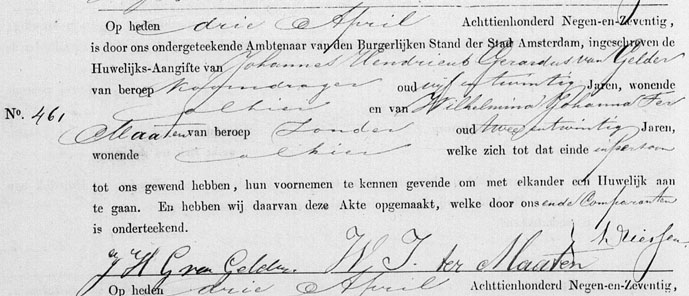 Op heden drie April Achttienhonderd Negen-en-Zeventig,
is door ons ondergeteekende Ambtenaar van den Burgerlijken Stand der Stad Amsterdam, ingeschreven de
Huwelijks-Aangifte van Johannes Hendricus Gerardus van Gelder
van beroep oud vijf en twintig Jaren, wonende
No. 461 alhier en van Wilhelmina Johanna Ter
Maaten van beroep Zonder oud twee en twintig Jaren,
wonende alhier welke zich tot dat einde in persoon
tot ons gewend hebben, hun voornemen te kennen gevende om met elkander een Huwelijk aan
te gaan. En hebben wij daarvan deze Akte opgemaakt, welke door ons en de Comparanten
is onderteekend.
J H G van Gelder. W. J. ter Maaten
Op heden drie April Achttienhonderd Negen-en-Zeventig,